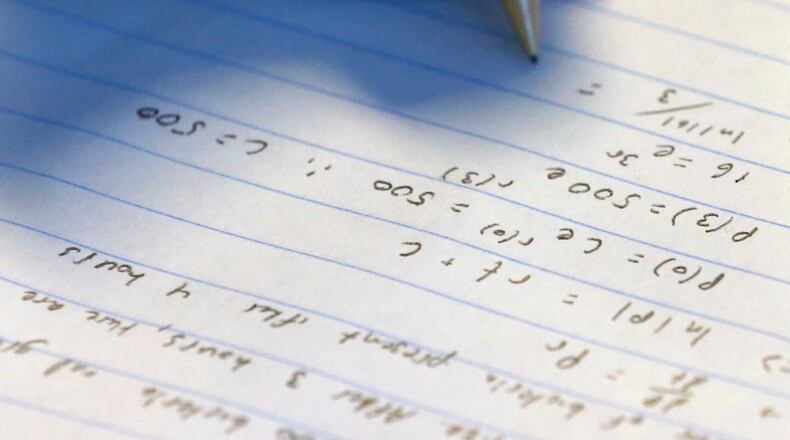 bacteria and
After 3 hours, are
of bacteria present after 4 hours
dP/dt = Pr
=> ln|P| = rt + C
P(0) = Ce^r(0) = 500 ∴ C = 500
P(3) = 500e^r(3)
16 = e^3r
ln|16|/3 =